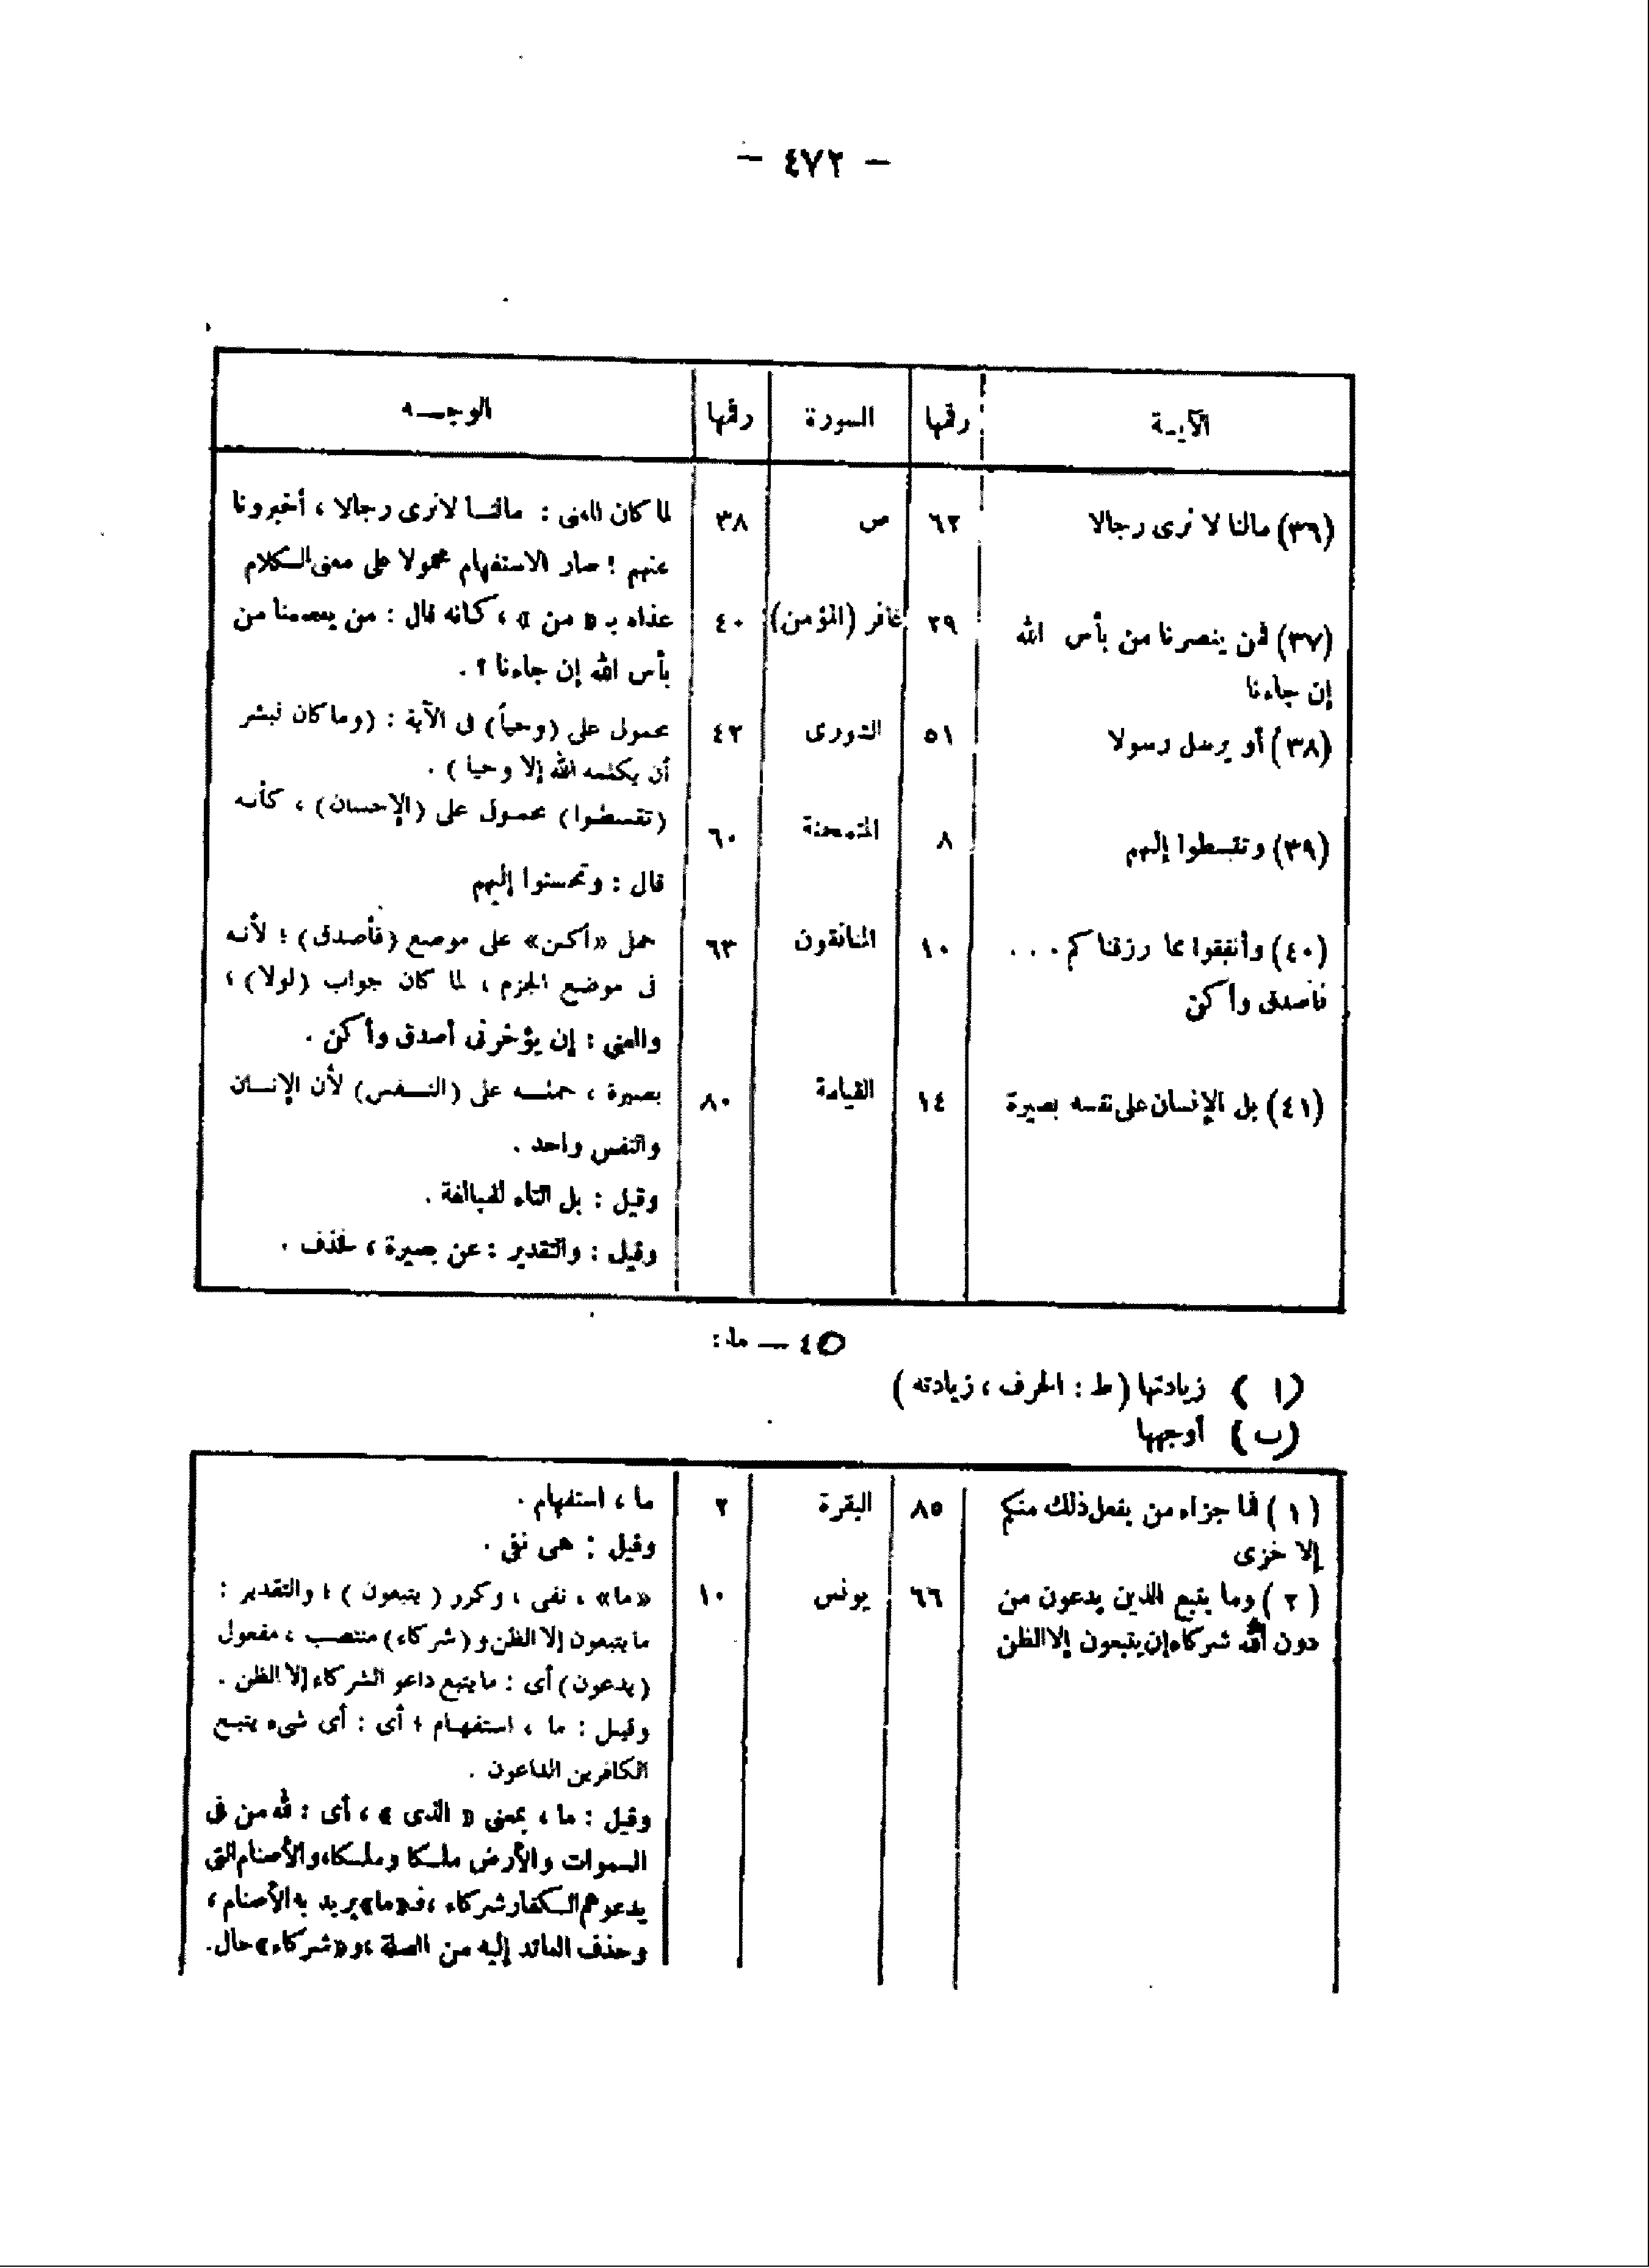 — ٤٧٢ —
الآيـة رقمها السورة رقمها الوجـــه
(٣٦) مالنا لا نرى رجالا ٦٢ ص ٣٨ لما كان المعنى : مالنـا لانرى رجالا ، أخبرونا
عنهم ؛ صار الاستفهام محمولا على معنى الـكلام
(٣٧) فمن ينصرنا من بأس الله ٢٩ غافر (المؤمن) ٤٠ عذاه بـ « من » ، كأنه قال : من يعصمنا من
إن جاءنا بأس الله إن جاءنا ؟ .
(٣٨) أو يرسل رسولا ٥١ الشورى ٤٢ محمول على (وحياً) فى الآية : (وما كان لبشر
أن يكلمه الله إلا وحيا ) .
(٣٩) وتقسطوا إليهم ٨ الممتحنة ٦٠ (تقسطوا) محمول على (الإحسان) ، كأنه
قال : وتحسنوا إليهم
(٤٠) وأنفقوا مما رزقناكم . . . ١٠ المنافقون ٦٣ حمل «أكن» على موضع (فأصدق) ؛ لأنه
فأصدق وأكن فى موضع الجزم ، لما كان جواب (لولا) ؛
والمعنى : إن يؤخرنى أصدق وأكن .
(٤١) بل الإنسان على نفسه بصيرة ١٤ القيامة ٨٠ بصيرة ، حمله على (النـفس) لأن الإنسان
والنفس واحد .
وقيل : بل التاء للمبالغة .
وقيل : والتقدير : عن بصيرة ، فحذف .
٤٥ — ما :
(ا) زيادتها (ط : الحرف ، زيادته )
(ب) أوجهها
(١) فما جزاء من يفعل ذلك منكم ٨٥ البقرة ٢ ما ، استفهام .
إلا خزى وقيل : هى نفى .
(٢) وما يتبع الذين يدعون من ٦٦ يونس ١٠ «ما» ، نفى ، وكرر ( يتبعون ) ؛ والتقدير :
دون الله شركاء إن يتبعون إلا الظن ما يتبعون إلا الظن و (شركاء) منتصب ، مفعول
(يدعون) أى : ما يتبع داعو الشركاء إلا الظن .
وقيل : ما ، استفهام ؛ أى : أى شىء يتبع
الكافرين الداعون .
وقيل : ما ، بمعنى « الذى » ، أى : لله من فى
السموات والأرض ملـكا وملـكا، والأصنام التى
يدعوهم الـكفار شركاء ، فـ«ما» يريد به الأصنام ،
وحذف العائد إليه من الصلة ، و«شركاء» حال.